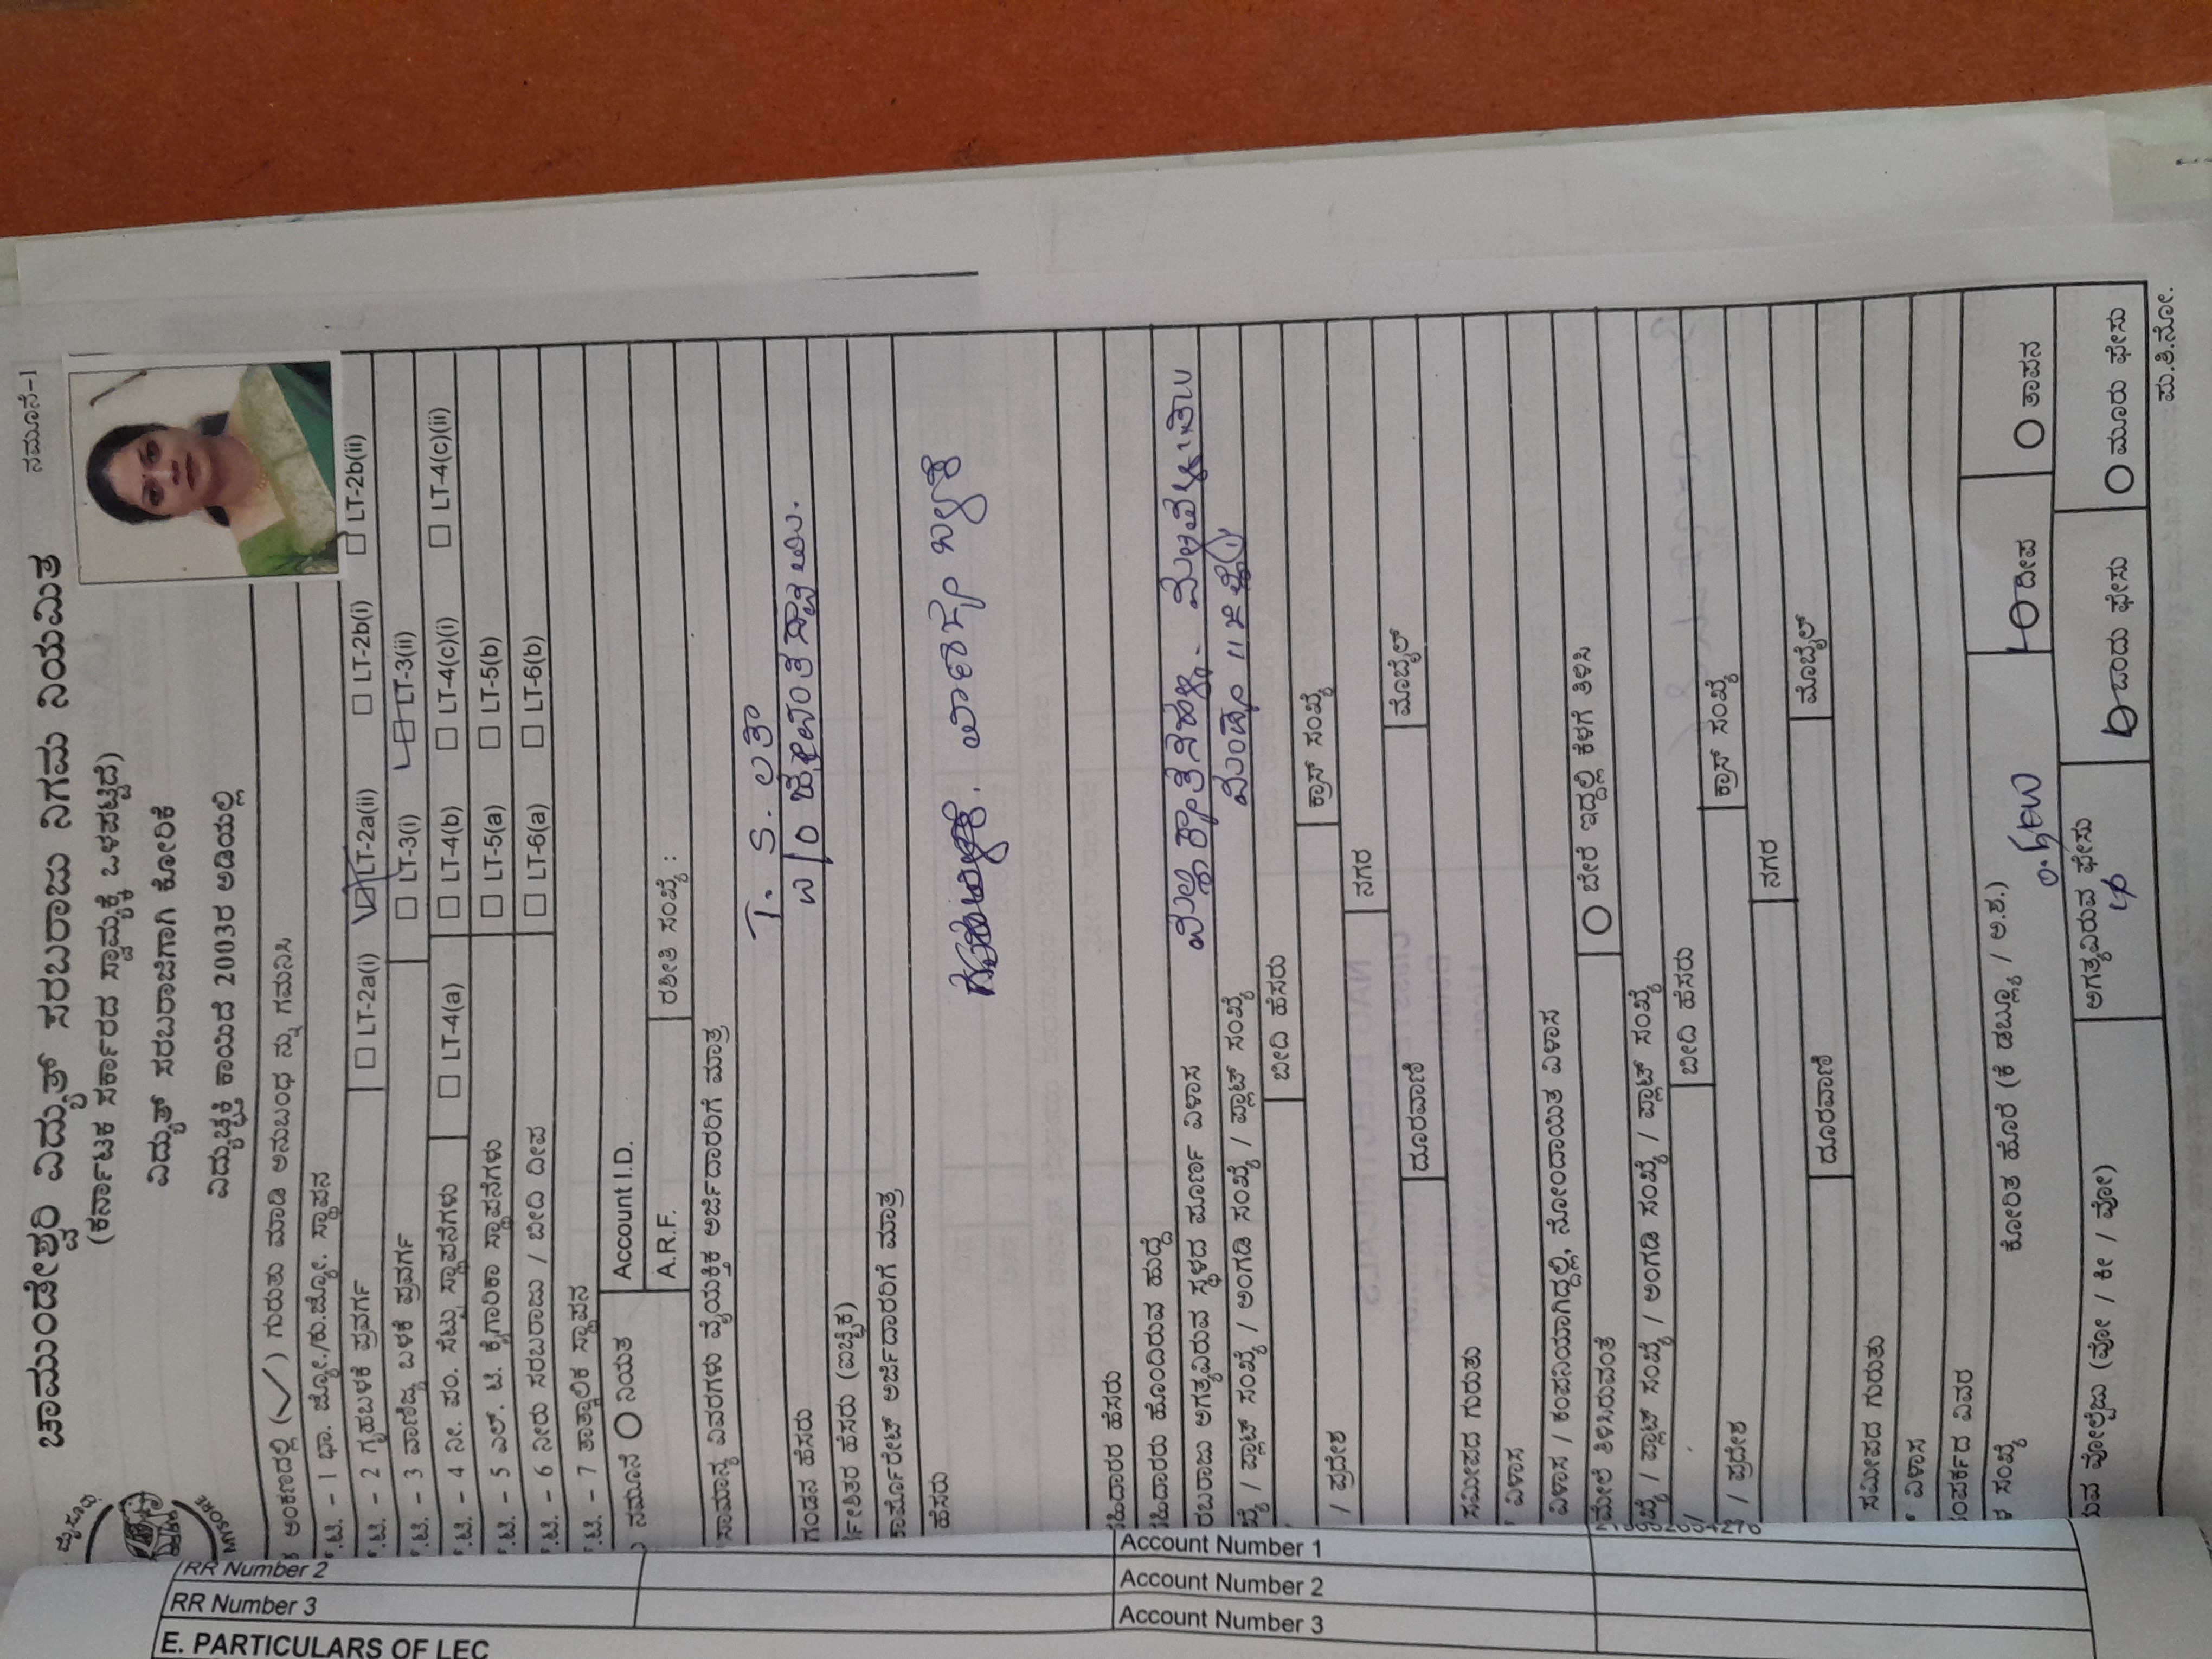 ನಮೂನೆ-1
ಚಾಮುಂಡೇಶ್ವರಿ ವಿದ್ಯುತ್ ಸರಬರಾಜು ನಿಗಮ ನಿಯಮಿತ
(ಕರ್ನಾಟಕ ಸರ್ಕಾರದ ಸ್ವಾಮ್ಯಕ್ಕೆ ಒಳಪಟ್ಟಿದೆ)
ವಿದ್ಯುತ್ ಸರಬರಾಜಿಗಾಗಿ ಕೋರಿಕೆ
ವಿದ್ಯುಚ್ಛಕ್ತಿ ಕಾಯಿದೆ 2003ರ ಅಡಿಯಲ್ಲಿ
MYSORE
ಅಂಕಣದಲ್ಲಿ (✓) ಗುರುತು ಮಾಡಿ ಅನುಬಂಧ ನ್ನು ಗಮನಿಸಿ
.ಟಿ. - 1 ಭಾ. ಜ್ಯೋ./ಕು.ಜ್ಯೋ. ಸ್ಥಾಪನ
.ಟಿ. - 2 ಗೃಹಬಳಕೆ ಪ್ರವರ್ಗ ☐ LT-2a(i) ☑ LT-2a(ii) ☐ LT-2b(i) ☐ LT-2b(ii)
.ಟಿ. - 3 ವಾಣಿಜ್ಯ ಬಳಕೆ ಪ್ರವರ್ಗ ☐ LT-3(i) ☐ LT-3(ii)
.ಟಿ. - 4 ನೀ. ಪಂ. ಸೆಟ್ಟು ಸ್ಥಾಪನೆಗಳು ☐ LT-4(a) ☐ LT-4(b) ☐ LT-4(c)(i) ☐ LT-4(c)(ii)
.ಟಿ. - 5 ಎಲ್. ಟಿ. ಕೈಗಾರಿಕಾ ಸ್ಥಾಪನೆಗಳು ☐ LT-5(a) ☐ LT-5(b)
.ಟಿ. - 6 ನೀರು ಸರಬರಾಜು / ಬೀದಿ ದೀಪ ☐ LT-6(a) ☐ LT-6(b)
.ಟಿ. - 7 ತಾತ್ಕಾಲಿಕ ಸ್ಥಾಪನ
ನಮೂನೆ ನಿಯತ Account I.D.
A.R.F. ರಶೀತಿ ಸಂಖ್ಯೆ :
ಸಾಮಾನ್ಯ ವಿವರಗಳು ವೈಯಕ್ತಿಕ ಅರ್ಜಿದಾರರಿಗೆ ಮಾತ್ರ
T. S. ಲತಾ
ಗಂಡನ ಹೆಸರು W/O
ಹೆಸರು (ಐಚ್ಛಿಕ)
ಕಾರ್ಪೊರೇಟ್ ಅರ್ಜಿದಾರರಿಗೆ ಮಾತ್ರ
ಹೆಸರು
ಸಹಿದಾರರ ಹೆಸರು
ಸಹಿದಾರರು ಹೊಂದಿರುವ ಹುದ್ದೆ
ಸರಬರಾಜು ಅಗತ್ಯವಿರುವ ಸ್ಥಳದ ಪೂರ್ಣ ವಿಳಾಸ
/ ಪ್ಲಾಟ್ ಸಂಖ್ಯೆ / ಅಂಗಡಿ ಸಂಖ್ಯೆ / ಪ್ಲಾಟ್ ಸಂಖ್ಯೆ
ಬೀದಿ ಹೆಸರು ಕ್ರಾಸ್ ಸಂಖ್ಯೆ
/ ಪ್ರದೇಶ ನಗರ
ದೂರವಾಣಿ ಮೊಬೈಲ್
ಸಮೀಪದ ಗುರುತು
ವಿಳಾಸ
ವಿಳಾಸ / ಕಂಪನಿಯಾಗಿದ್ದಲ್ಲಿ, ನೋಂದಾಯಿತ ವಿಳಾಸ
ಮೇಲೆ ತಿಳಿಸಿರುವಂತೆ ಬೇರೆ ಇದ್ದಲ್ಲಿ ಕೆಳಗೆ ತಿಳಿಸಿ
/ ಪ್ಲಾಟ್ ಸಂಖ್ಯೆ / ಅಂಗಡಿ ಸಂಖ್ಯೆ / ಪ್ಲಾಟ್ ಸಂಖ್ಯೆ
ಬೀದಿ ಹೆಸರು ಕ್ರಾಸ್ ಸಂಖ್ಯೆ
/ ಪ್ರದೇಶ ನಗರ
ದೂರವಾಣಿ ಮೊಬೈಲ್
ಸಮೀಪದ ಗುರುತು
ವಿಳಾಸ
ಸಂಪರ್ಕದ ವಿವರ
ಸಂಖ್ಯೆ ಕೋರಿತ ಹೊರೆ (ಕೆ ಡಬ್ಲ್ಯೂ / ಅ.ಶ.) ದೀಪ ತಾಪನ
ವೋಲ್ಟೇಜು (ವೋ / ಕೀ / ವೋ) ಅಗತ್ಯವಿರುವ ಫೇಸು ಒಂದು ಫೇಸು ಮೂರು ಫೇಸು
ಪು.ತಿ.ನೋ.
RR Number 2 Account Number 1
RR Number 3 Account Number 2
Account Number 3
E. PARTICULARS OF LEC